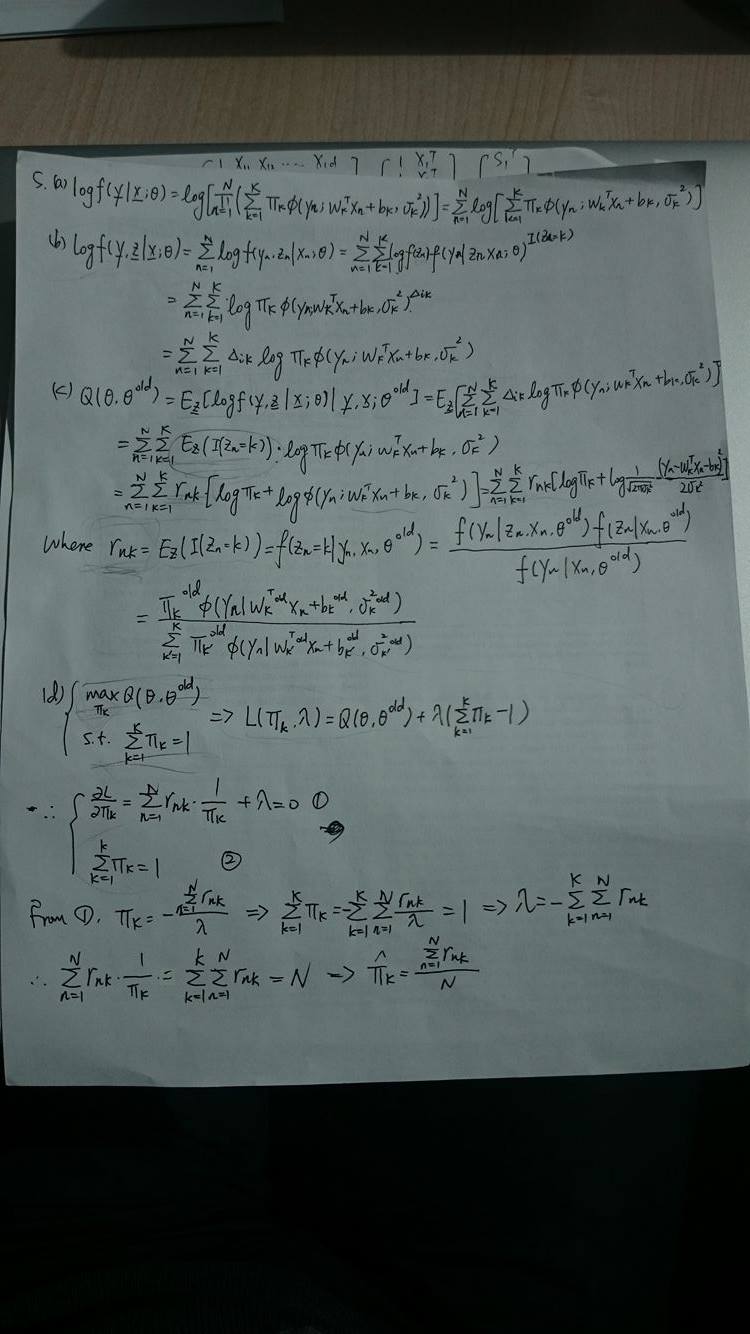 [ 1 X₁₁ X₁₂ ····· X₁d ] [ 1 X₁ᵀ ] [ S₁ᵀ ]
5. (a) log f(y|x;θ) = log[∏_{n=1}^{N} (∑_{k=1}^{K} π_k φ(y_n; w_k^T x_n + b_k, σ_k²))] = ∑_{n=1}^{N} log[∑_{k=1}^{K} π_k φ(y_n; w_k^T x_n + b_k, σ_k²)]
(b) log f(y,z|x;θ) = ∑_{n=1}^{N} log f(y_n, z_n|x_n;θ) = ∑_{n=1}^{N} ∑_{k=1}^{K} log f(z_n) f(y_n|z_n x_n;θ)^{I(z_n=k)}
= ∑_{n=1}^{N} ∑_{k=1}^{K} log π_k φ(y_n; w_k^T x_n + b_k, σ_k²)^{Δ_{ik}}
= ∑_{n=1}^{N} ∑_{k=1}^{K} Δ_{ik} log π_k φ(y_n; w_k^T x_n + b_k, σ_k²)
(c) Q(θ, θ^{old}) = E_z[log f(y,z|x;θ)|y,x;θ^{old}] = E_z[∑_{n=1}^{N} ∑_{k=1}^{K} Δ_{ik} log π_k φ(y_n; w_k^T x_n + b_k, σ_k²)]
= ∑_{n=1}^{N} ∑_{k=1}^{K} E_z(I(z_n=k)) · log π_k φ(y_n; w_k^T x_n + b_k, σ_k²)
= ∑_{n=1}^{N} ∑_{k=1}^{K} r_{nk} [log π_k + log φ(y_n; w_k^T x_n + b_k, σ_k²)] = ∑_{n=1}^{N} ∑_{k=1}^{K} r_{nk} [log π_k + log 1/√(2πσ_k²) - (y_n - w_k^T x_n - b_k)²/2σ_k²]
where r_{nk} = E_z(I(z_n=k)) = f(z_n=k|y_n, x_n, θ^{old}) = f(y_n|z_n, x_n, θ^{old}) f(z_n|x_n, θ^{old}) / f(y_n|x_n, θ^{old})
= π_k^{old} φ(y_n|w_k^{T old} x_n + b_k^{old}, σ_k^{2 old}) / ∑_{k'=1}^{K} π_{k'}^{old} φ(y_n|w_{k'}^{T old} x_n + b_{k'}^{old}, σ_{k'}^{2 old})
(d) { max_{π_k} Q(θ, θ^{old})
s.t. ∑_{k=1}^{K} π_k = 1 => L(π_k, λ) = Q(θ, θ^{old}) + λ(∑_{k=1}^{K} π_k - 1)
∴ { ∂L/∂π_k = ∑_{n=1}^{N} r_{nk} · 1/π_k + λ = 0 ①
∑_{k=1}^{K} π_k = 1 ②
From ①, π_k = - ∑_{n=1}^{N} r_{nk}/λ => ∑_{k=1}^{K} π_k = -∑_{k=1}^{K} ∑_{n=1}^{N} r_{nk}/λ = 1 => λ = -∑_{k=1}^{K} ∑_{n=1}^{N} r_{nk}
∴ ∑_{n=1}^{N} r_{nk} · 1/π_k = ∑_{k=1}^{K} ∑_{n=1}^{N} r_{nk} = N => π̂_k = ∑_{n=1}^{N} r_{nk}/N